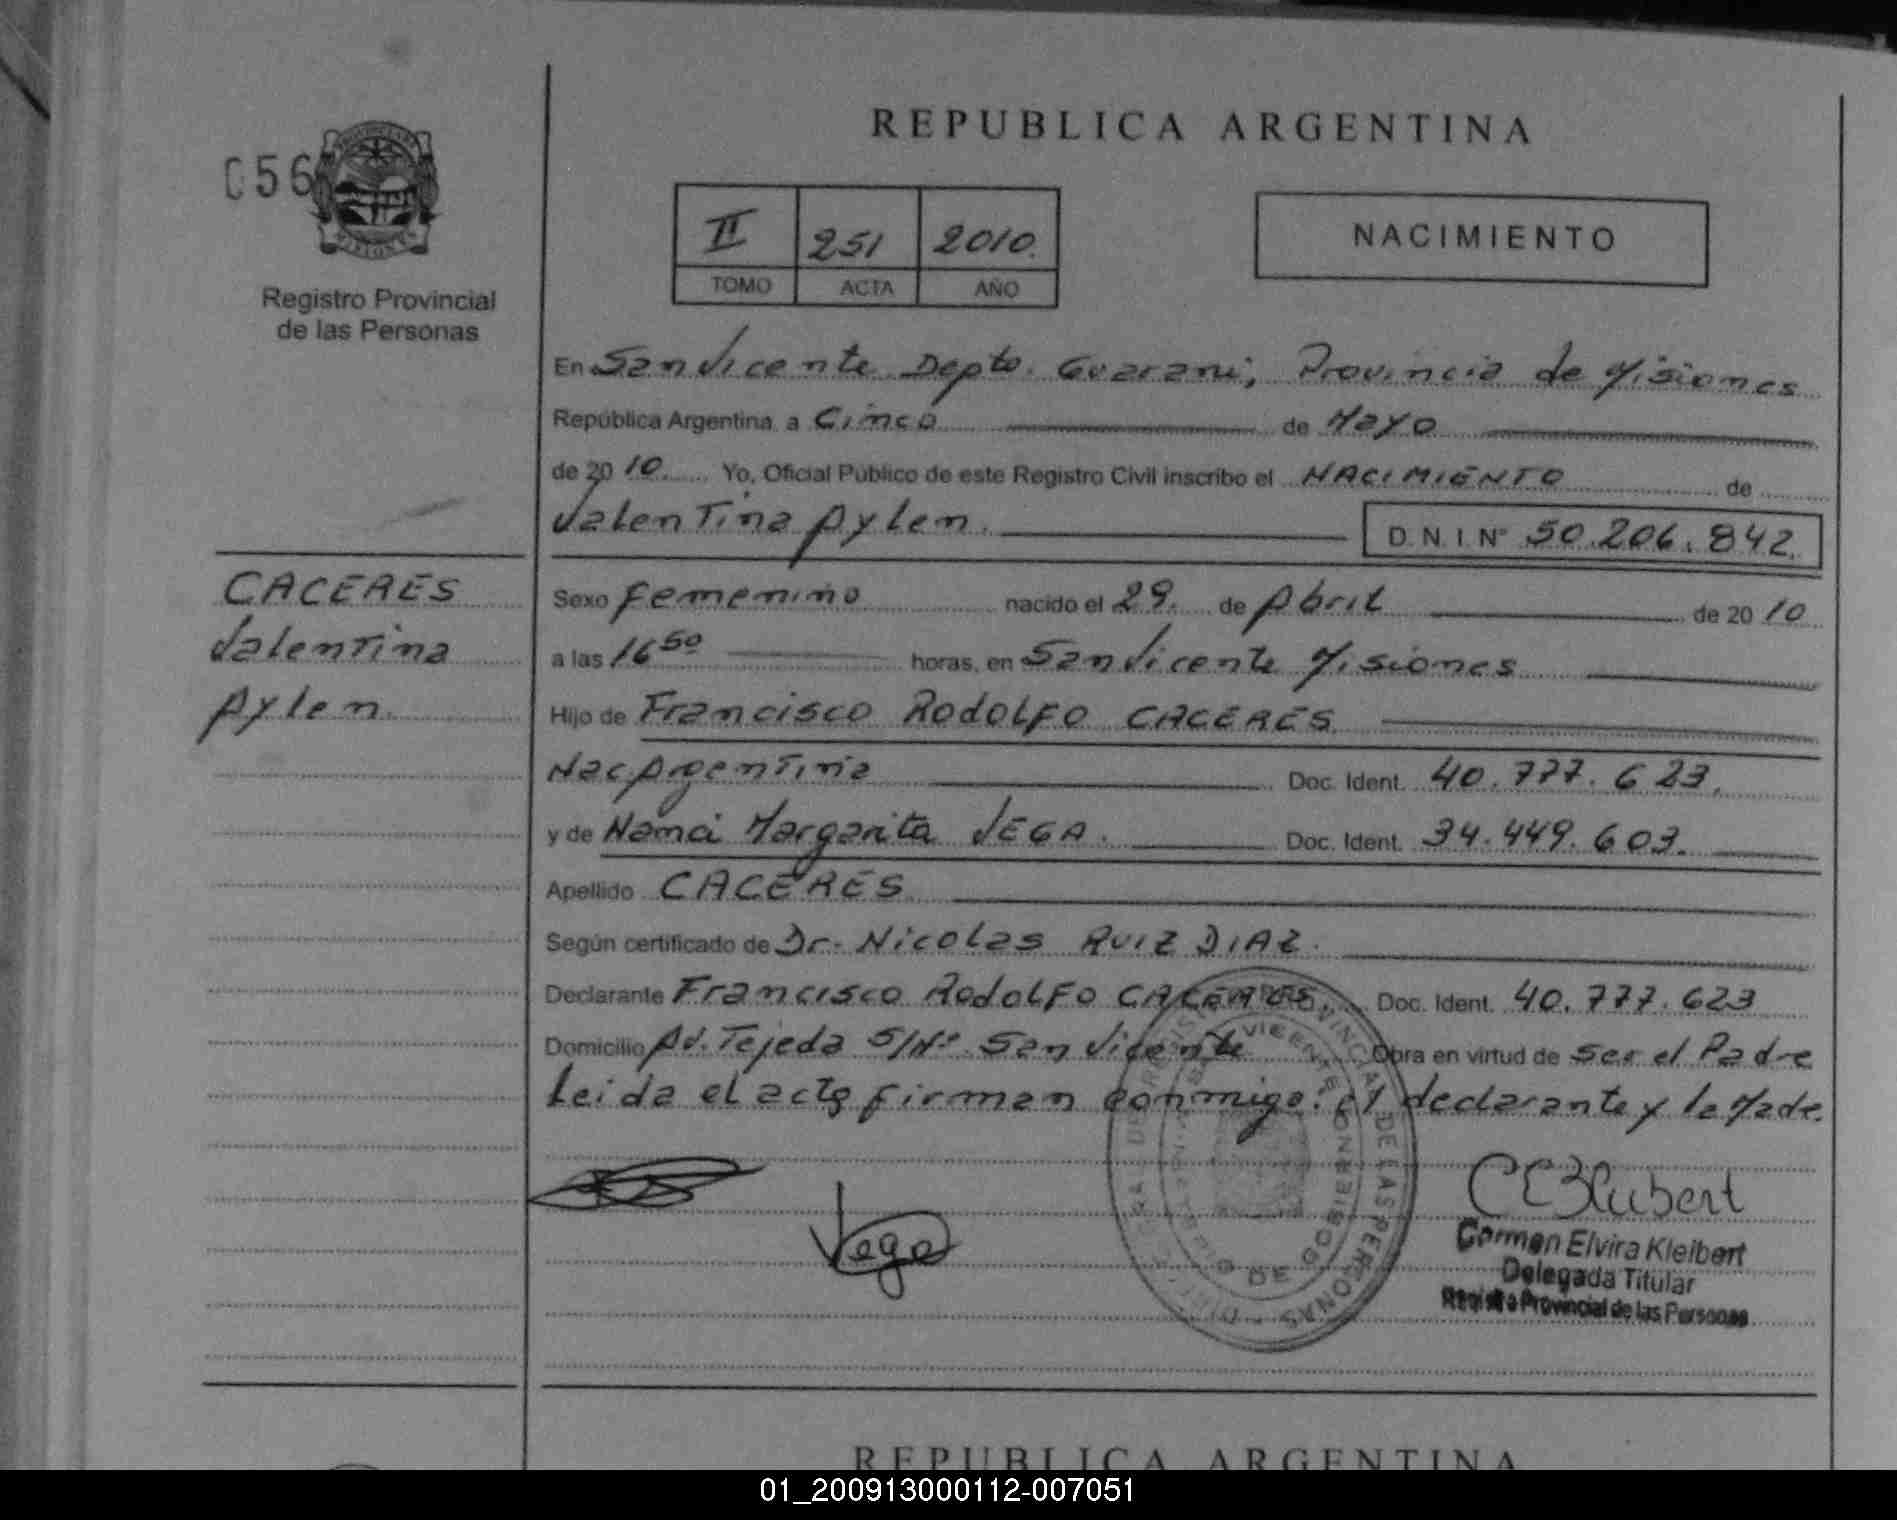 REPUBLICA ARGENTINA
056
II 251 2010.
TOMO ACTA AÑO
NACIMIENTO
Registro Provincial
de las Personas
En San Vicente Depto. Guarani, Provincia de Misiones
República Argentina, a Cinco de Mayo
de 2010. Yo, Oficial Público de este Registro Civil inscribo el NACIMIENTO de
Valentina Aylen. D.N.I. Nº 50.206.842.
CACERES
Valentina
Aylen.
Sexo femenino nacido el 29. de Abril de 2010
a las 16 50 horas, en San Vicente Misiones
Hijo de Francisco RODOLFO CACERES.
Nac. Argentina Doc. Ident. 40.777.623.
y de Nanci Margarita VEGA. Doc. Ident. 34.449.603.
Apellido CACERES
Según certificado de Dr. Nicolas RUIZ DIAZ.
Declarante Francisco RodoLFO CACERES. Doc. Ident. 40.777.623
Domicilio Av. Tejeda S/Nº San Vicente Obra en virtud de ser el Padre
Leida el acta firman conmigo: el declarante y la Madre.
Vega
CEKleibert
Carmen Elvira Kleibert
Delegada Titular
Registro Provincial de las Personas
REPUBLICA ARGENTINA
01_200913000112-007051